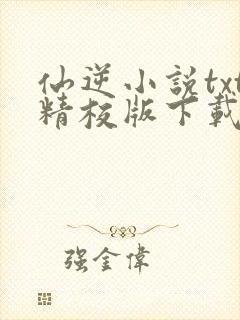 仙逆小説txt
精校版下載
强金偉